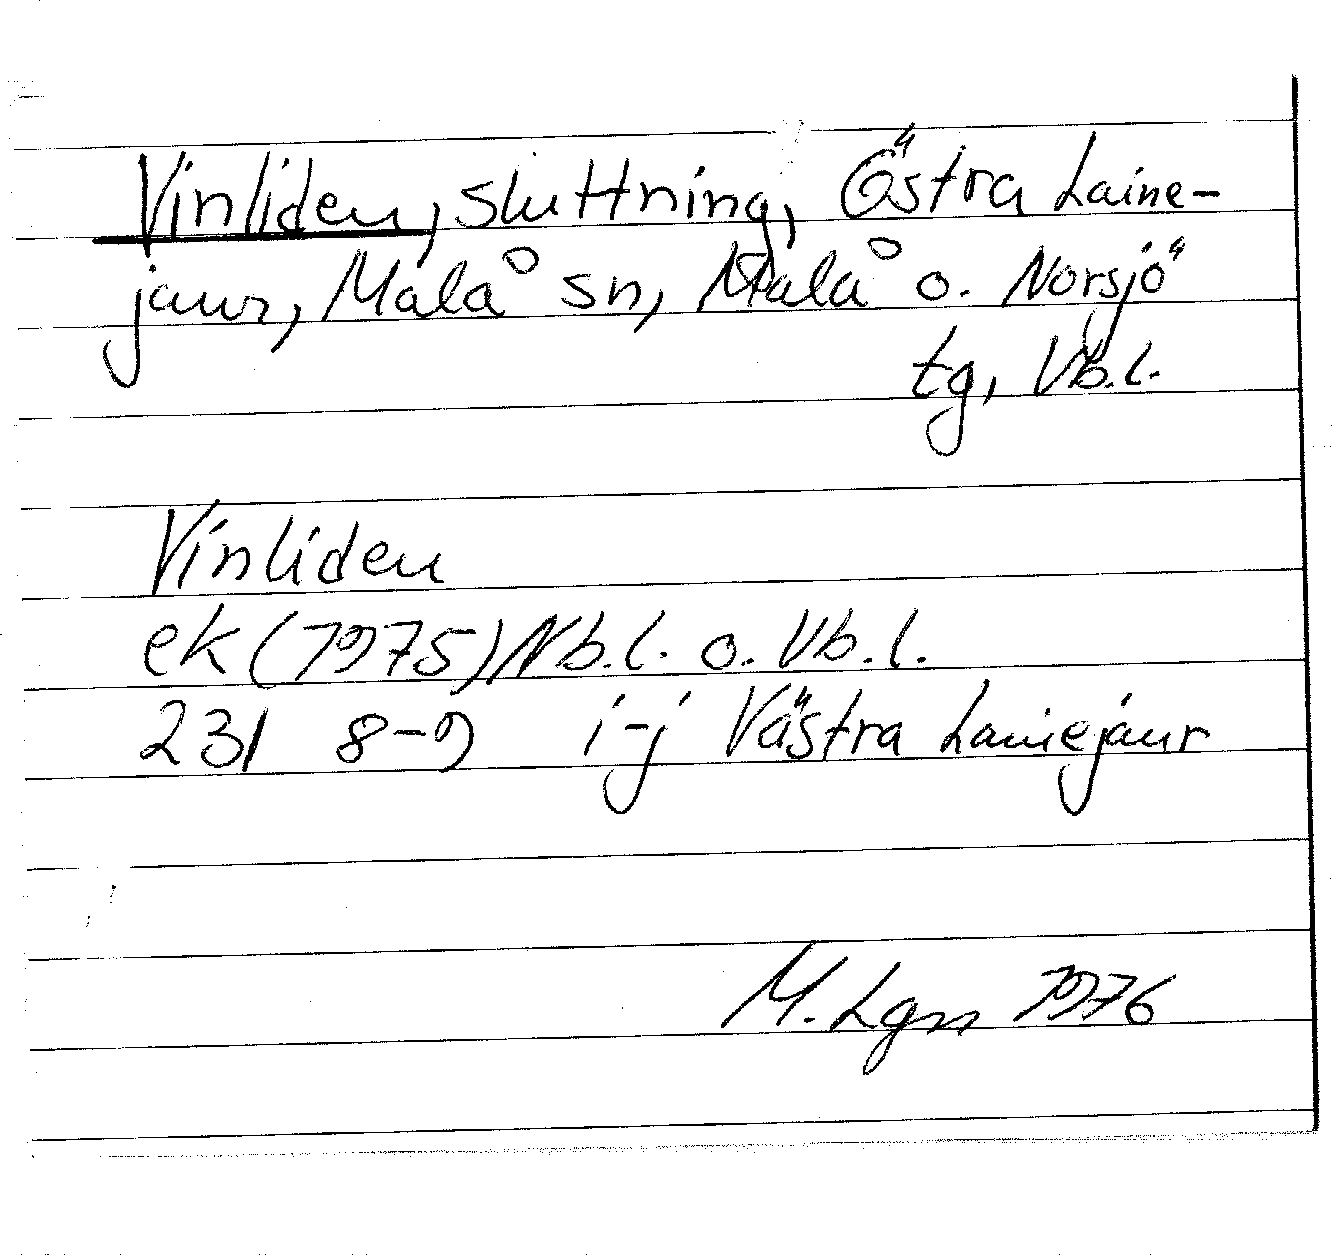 Vinliden, sluttning, Östra Laine-
jaur, Malå sn, Malå o. Norsjö
tg, Vb.l.
Vinliden
ek (1975) Nb.l. o. Vb.l.
231 8-9 i-j Västra Lainejaur
M. Lgn 1976